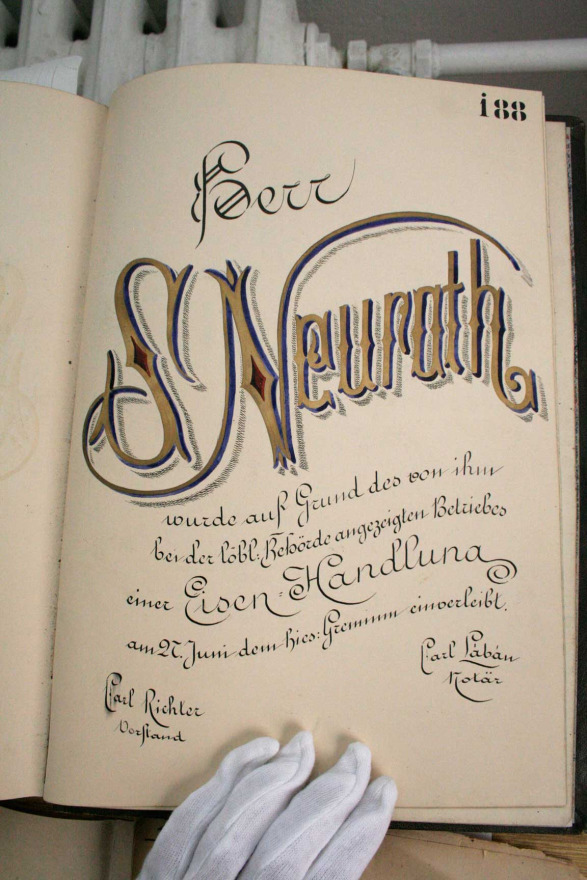 i88
Herr
S. Neurath
wurde auf Grund des von ihm
bei der löbl: Behörde angezeigten Betriebes
einer Eisen-Handlung
am 27. Juni dem hies: Gremium einverleibt.
Carl Lábán
Notär
Carl Richter
Vorstand